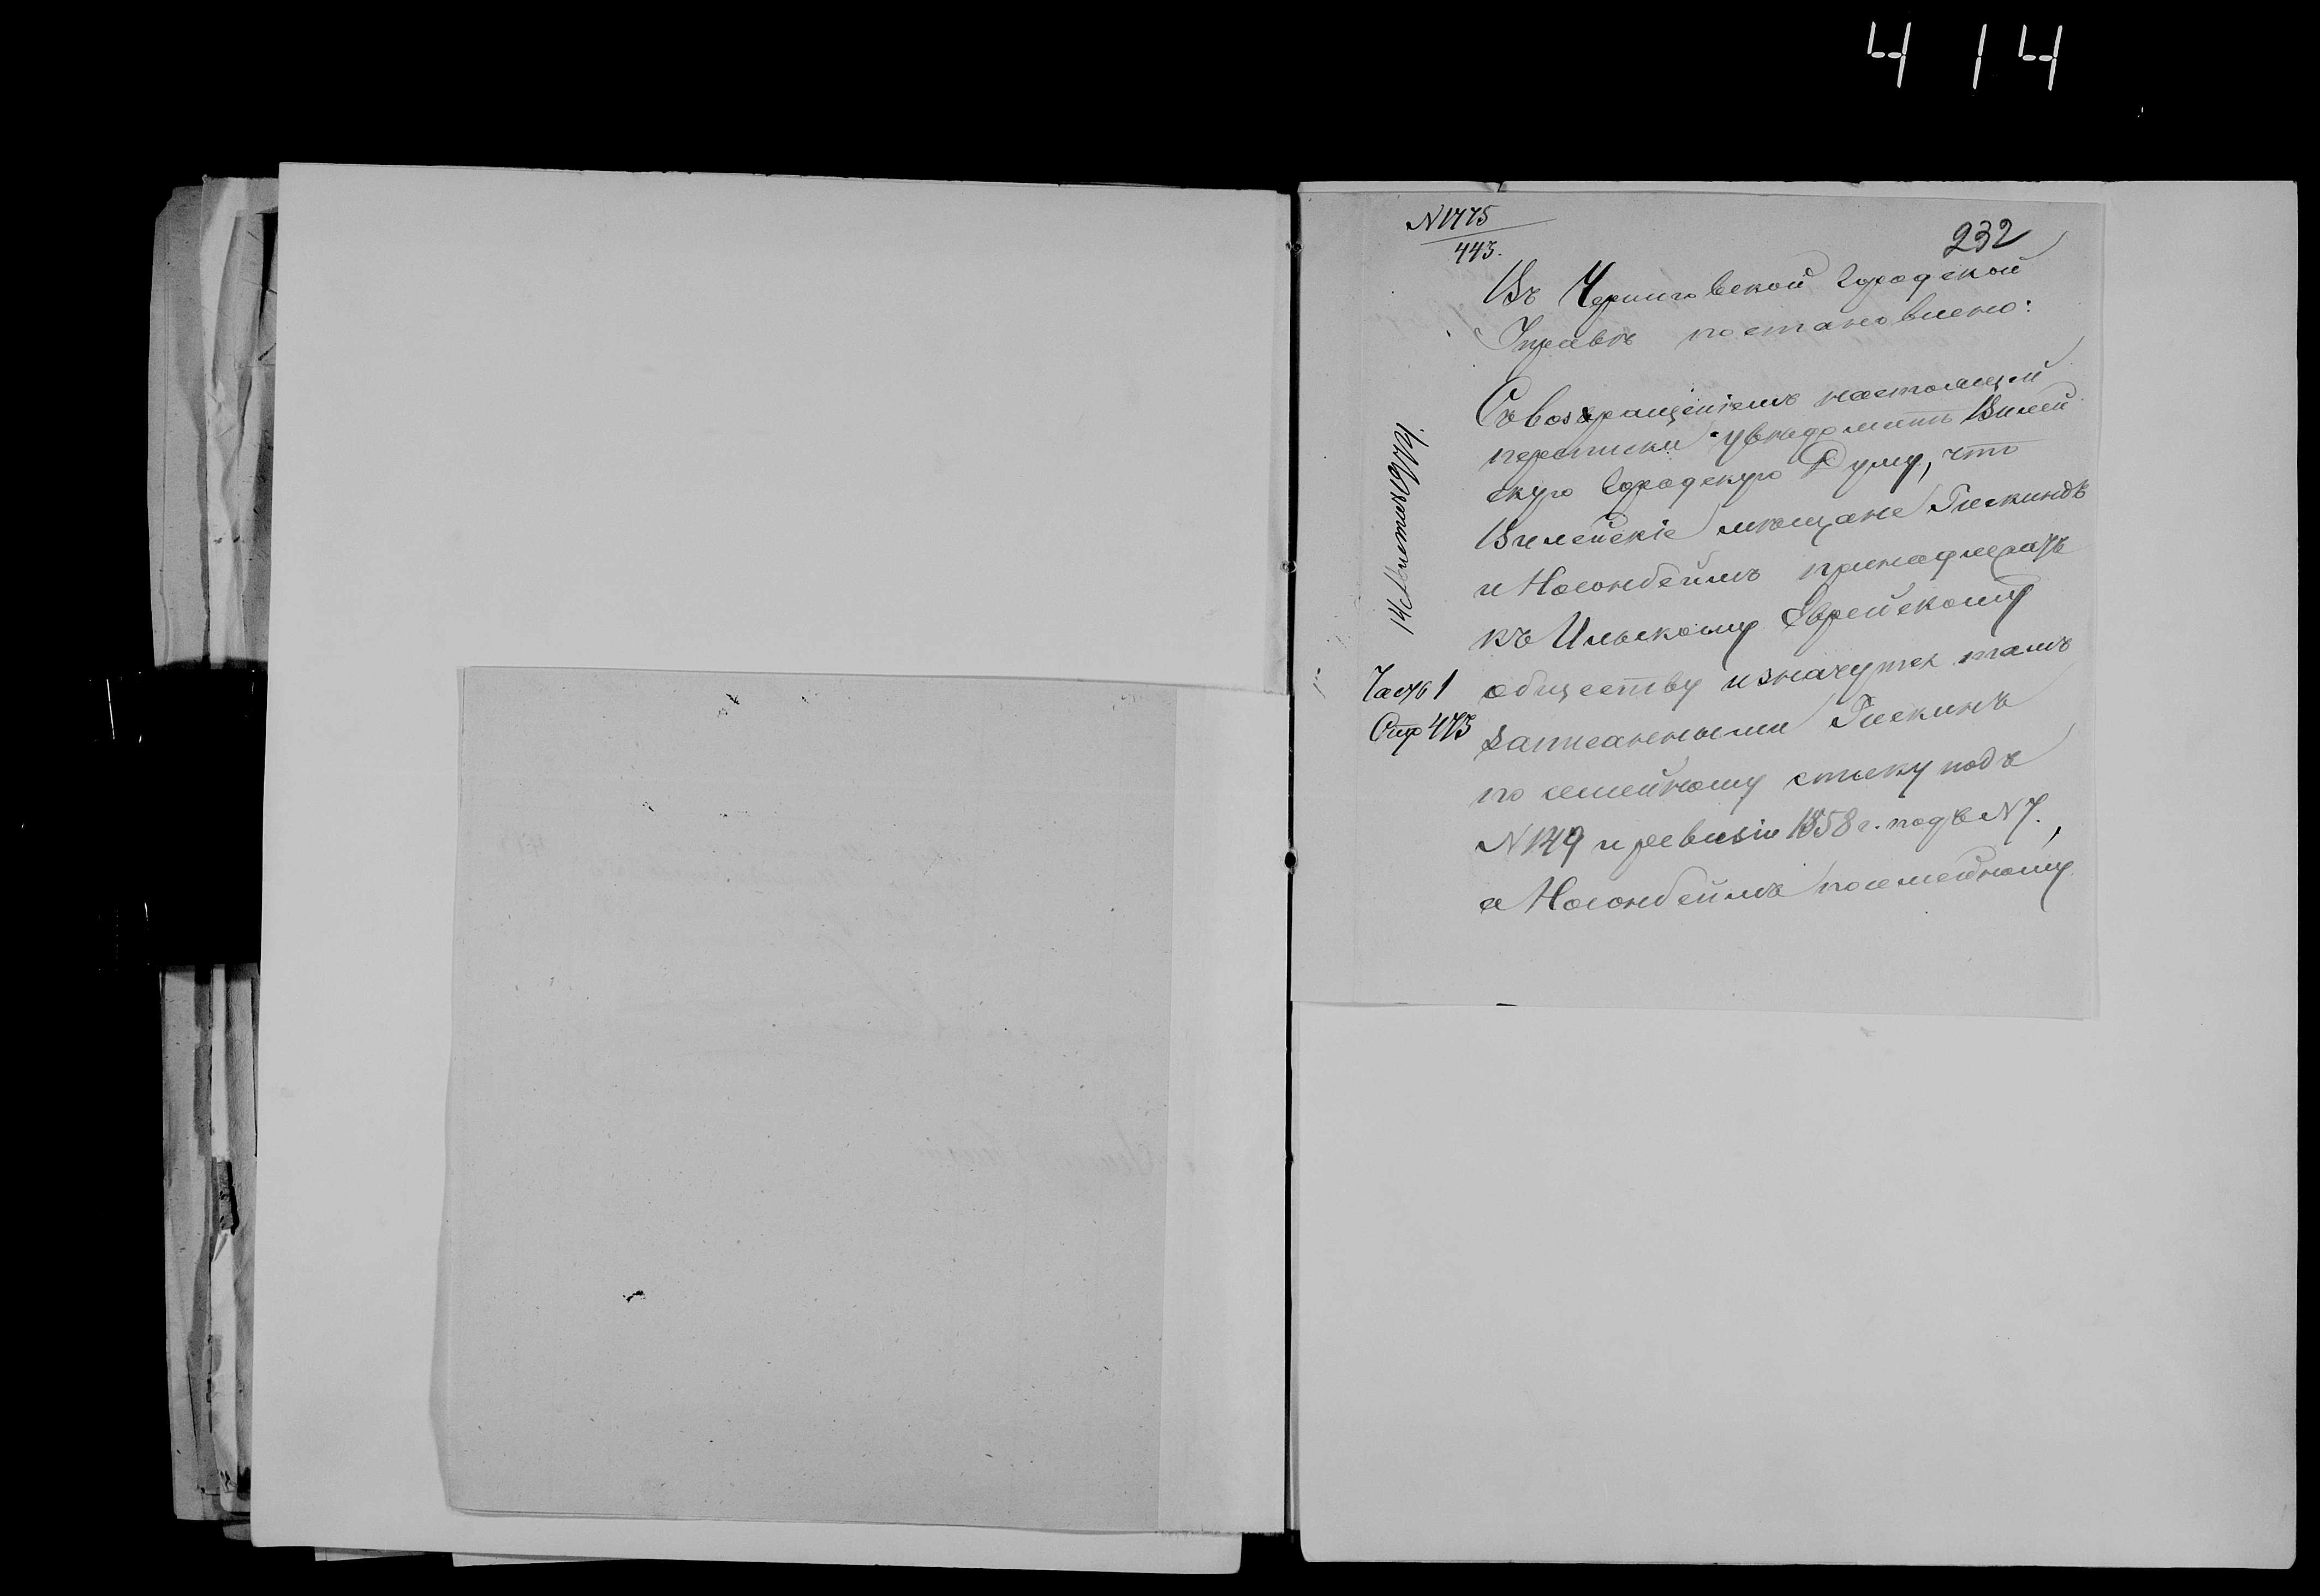 4 14
N 1775
443.
232
Въ Черниговской Городской
Управѣ постановлено:
Съ возвращеніемъ настоящей
переписки увѣдомить Вилей
скую Городскую Думу, что
Вилейскіе мѣщане Гискиндъ
и Носонбеймъ принадлежатъ
къ Ильскому Еврейскому
Часть 1 обществу и значутся тамъ
Стр 473 записанными Гискинъ
по семейному списку подъ
N 149 и ревизіи 1858 г. подъ N 7.,
а Носонбеймъ по семейному
14